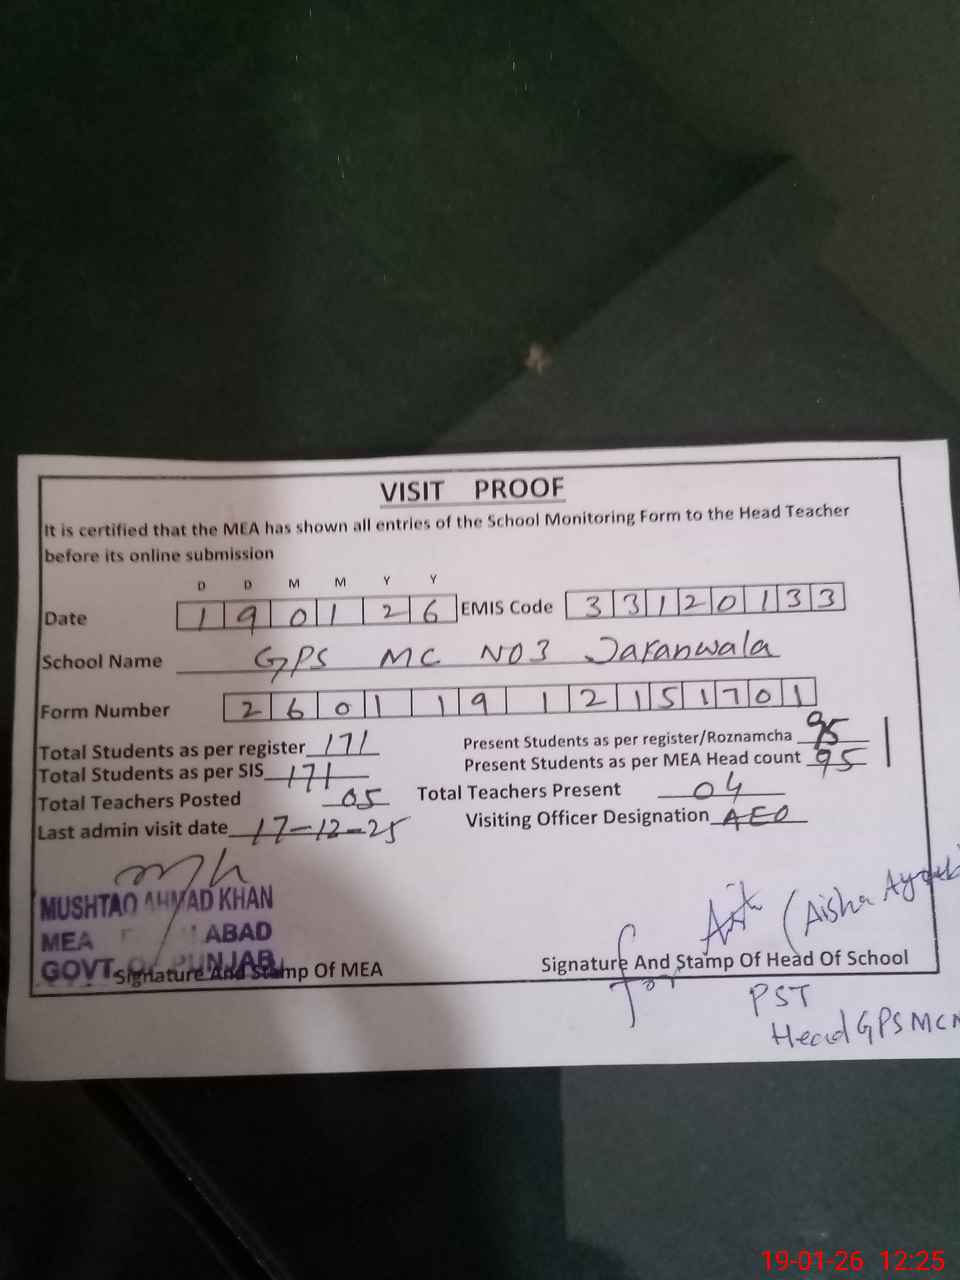 VISIT PROOF
It is certified that the MEA has shown all entries of the School Monitoring Form to the Head Teacher
before its online submission
D D M M Y Y
Date 1 9 0 1 2 6 EMIS Code 3 3 1 2 0 1 3 3
School Name GPS MC NO3 Jaranwala
Form Number 2 6 0 1 1 9 1 2 1 5 1 7 0 1
Total Students as per register 171 Present Students as per register/Roznamcha 95
Total Students as per SIS 171 Present Students as per MEA Head count 95
Total Teachers Posted 05 Total Teachers Present 04
Last admin visit date 17-12-25 Visiting Officer Designation AEO
MUSHTAQ AHMAD KHAN
MEA ABAD
GOVT. OF PUNJAB
(Aisha Ayoub
Signature And Stamp Of MEA Signature And Stamp Of Head Of School
for PST
Head GPS MC
19-01-26 12:25